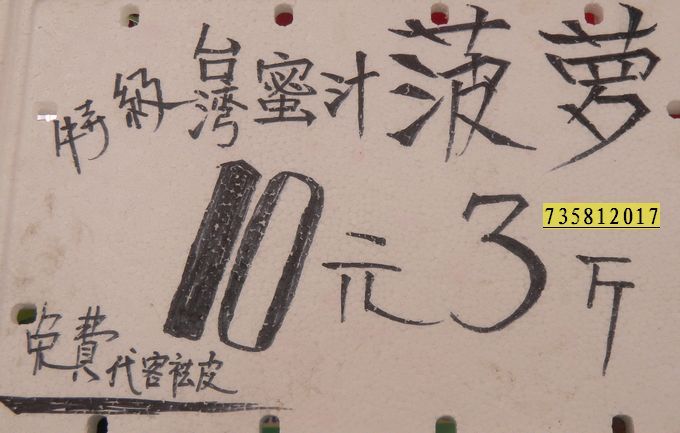 特級台灣蜜汁菠萝
10元3斤
735812017
免費代客祛皮